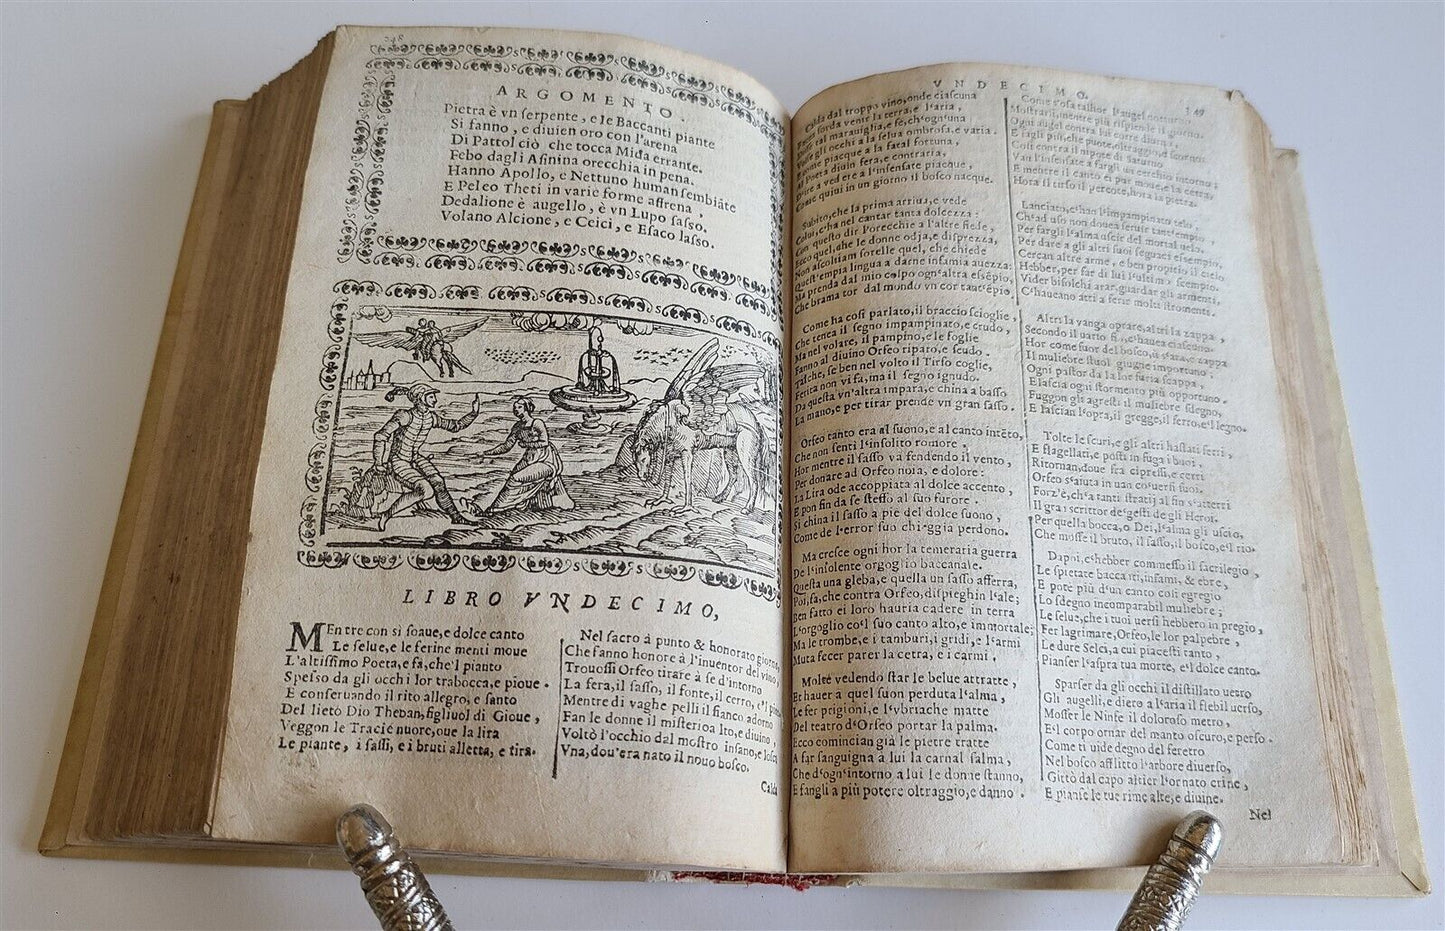 248
ARGOMENTO.
Pietra è vn serpente, e le Baccanti piante
Si fanno, e diuien oro con l'arena
Di Pattol ciò che tocca Mida errante.
Febo dagli Asinina orecchia in pena.
Hanno Apollo, e Nettuno human sembiãte
E Peleo Theti in varie forme affrena,
Dedalione è augello, è vn Lupo sasso.
Volano Alcione, e Ceici, e Esaco lasso.
LIBRO VNDECIMO,
MEntre con sì soaue, e dolce canto
Le selue, e le ferine menti moue
L'altissimo Poeta, e fà, che'l pianto
Spesso da gli occhi lor trabocca, e pioue.
E conseruando il rito allegro, e santo
Del lieto Dio Theban, figliuol di Gioue,
Veggon le Tracie nuore, oue la lira
Le piante, i sassi, e i bruti alletta, e tira.
Nel sacro à punto & honorato giorno,
Che fanno honore à l'inuentor del vino,
Trouossi Orfeo tirare à se d'intorno
La fera, il sasso, il fonte, il cerro, e'l
Mentre di vaghe pelli il fianco adorno
Fan le donne il misterio alto, e diuino,
Voltò l'occhio dal mostro insano, e losco
Vna, dou'era nato il nouo bosco.
Calda
VNDECIMO.
249
Calda dal troppo vino, onde ciascuna
sorda venir la terra, e l'aria,
tal marauiglia, e fè, ch'ogn'una
gli occhi a la selua ombrosa, e varia.
come piacque a la fatal fortuna,
Al Poeta diuin fera, e contraria,
a veder e a l'insensate piacque,
Come quiui in un giorno il bosco nacque.
Subito, che la prima arriua, e vede
Colui, c'ha nel cantar tanta dolcezza:
Con questo dir l'orecchie a l'altre fiede,
Ecco quel, che le donne odia, e disprezza,
Non ascoltiam sorelle quel, che chiede
Quest'empia lingua a darne infamia auezza:
Ma prenda dal mio colpo ogn'altra essẽpio,
Che brama tor dal mondo vn cor tant'ẽpio.
Come ha così parlato, il braccio scioglie,
Che tenea il segno impampinato, e crudo,
Ma nel volare, il pampino, e le foglie
Fanno al diuino Orfeo riparo, e scudo.
Talche, se ben nel volto il Tirso coglie,
Ferita non vi fa, ma il segno ignudo.
Da questa vn'altra impara, e china a basso
La mano, e per tirar prende vn gran sasso.
Orfeo tanto era al suono, e al canto intẽto,
Che non sentì l'insolito romore,
Hor mentre il sasso va fendendo il vento,
Per donare ad Orfeo noia, e dolore:
La Lira ode accoppiata al dolce accento,
E pon fin da se stesso al suo furore.
Si china il sasso a piè del dolce suono,
Come de l'error suo chiggia perdono.
Ma cresce ogni hor la temeraria guerra
De l'insolente orgoglio baccanale.
Questa una gleba, e quella un sasso afferra,
Poi, fa, che contra Orfeo, dispieghin l'ale;
Ben fatto ei loro hauria cadere in terra
L'orgoglio co'l suo canto alto, e immortale;
Ma le trombe, e i tamburi, i gridi, e l'armi
Muta fecer parer la cetra, e i carmi.
Molte vedendo star le belue attratte,
Et hauer a quel suon perduta l'alma,
Le fer prigioni, e l'vbriache matte
Del teatro d'Orfeo portar la palma.
Ecco comincian già le pietre tratte
A far sanguigna a lui la carnal salma,
Che d'ogn'intorno a lui le donne stanno,
E fangli a più potere oltraggio, e danno.
Come s'osa talhor l'augel notturno
Mostrarsi, mentre più risplende il giorno.
Ogni augel contra lui corre diurno,
E fagli più, che puote, oltraggio, e scorno.
Così contra il nipote di Saturno
Van l'insensate a fargli un cerchio intorno;
E mentre il canto ei pur moue, e la cetra
Hora il tirso il percote, hor la pietra.
Lanciato, c'han l'impampinato telo,
Ch'ad uso non douea seruir tant'empio,
Per fargli l'alma uscir del mortal uelo,
Per dare a gli altri suoi seguaci essempio,
Cercan altre arme, e ben propitio il cielo
Hebber, per far di lui l'ultimo scempio.
Vider bifolchi arar, guardar gli armenti,
C'haueano atti a ferir molti stromenti.
Altri la vanga oprare, altri la zappa,
Secondo il uario
Hor come fuor del bosco, zappa
Il muliebre stuol giugne importuno.
Ogni pastor da la lor furia scappa,
E lascia ogni stormento più opportuno.
Fuggon gli agresti il muliebre sdegno,
E lascian l'opra, il gregge, il ferro, e'l legno.
Tolte le scuri, e gli altri hastati ferri,
E flagellati, e posti in fuga i buoi.
Ritornan, doue fra cipressi, e cerri
Orfeo s'aiuta in uan co'uersi suoi.
Forz'è, ch'a tanti stratij al fin s'atterri
Il gran scrittor de'gesti de gli Heroi.
Per quella bocca, o Dei, l'alma gli uscìo,
Che mosse il bruto, il sasso, il bosco, e'l rio.
Dapoi, c'hebber commesso il sacrilegio,
Le spietate baccanti, infami, & ebre,
E pote più d'un canto così egregio
Lo sdegno incomparabil muliebre;
Le selue, che i tuoi uersi hebbero in pregio,
Fer lagrimare, Orfeo, le lor palpebre,
Le dure Selci, a cui piacesti tanto,
Pianser l'aspra tua morte, e'l dolce canto.
Sparser da gli occhi il distillato uetro
Gli augelli, e diero a l'aria il flebil uerso,
Mosser le Ninfe il doloroso metro,
E'l corpo ornar del manto oscuro, e perso.
Come ti uide degno del feretro
Nel bosco afflitto l'arbore diuerso,
Gittò dal capo altier l'ornato crine,
E pianse le tue rime alte, e diuine.
Nel